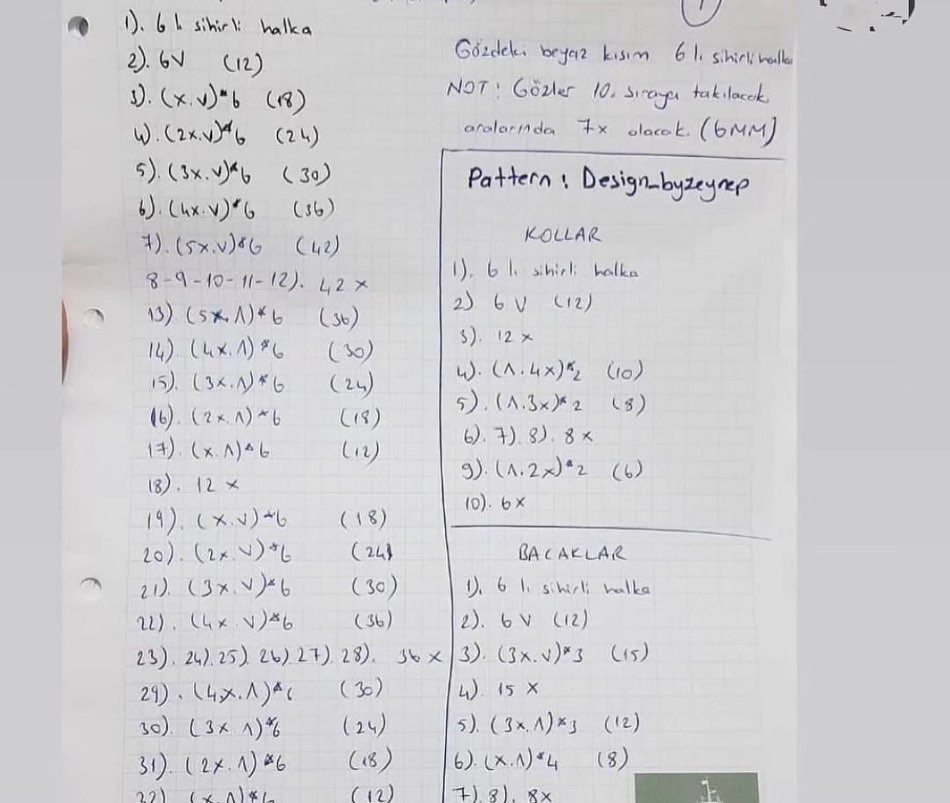 1). 6 lı sihirli halka
2). 6V (12)
3). (x.v)*6 (18)
4). (2x.v)*6 (24)
5). (3x.v)*6 (30)
6). (4x.v)*6 (36)
7). (5x.v)*6 (42)
8-9-10-11-12). 42 x
13) (5x.Λ)*6 (36)
14). (4x.Λ)*6 (30)
15). (3x.Λ)*6 (24)
16). (2x.Λ)*6 (18)
17). (x.Λ)*6 (12)
18). 12 x
19). (x.v)*6 (18)
20). (2x.v)*6 (24)
21). (3x.v)*6 (30)
22). (4x v)*6 (36)
23). 24). 25). 26). 27). 28). 36 x
29). (4x.Λ)*6 (30)
30). (3x Λ)*6 (24)
31). (2x.Λ)*6 (18)
32) (x.Λ)*6 (12)
1
Gözdeki beyaz kısım 6 lı sihirli halka
NOT: Gözler 10. sıraya takılacak
aralarında 7x olacak. (6MM)
Pattern: Design_byzeynep
KOLLAR
1). 6 lı sihirli halka
2) 6 V (12)
3). 12 x
4). (Λ.4x)*2 (10)
5). (Λ.3x)*2 (8)
6). 7). 8). 8 x
9). (Λ.2x)*2 (6)
10). 6x
BACAKLAR
1). 6 lı sihirli halka
2). 6 V (12)
3). (3x.v)*3 (15)
4). 15 x
5). (3x.Λ)*3 (12)
6). (x.Λ)*4 (8)
7). 8). 8x